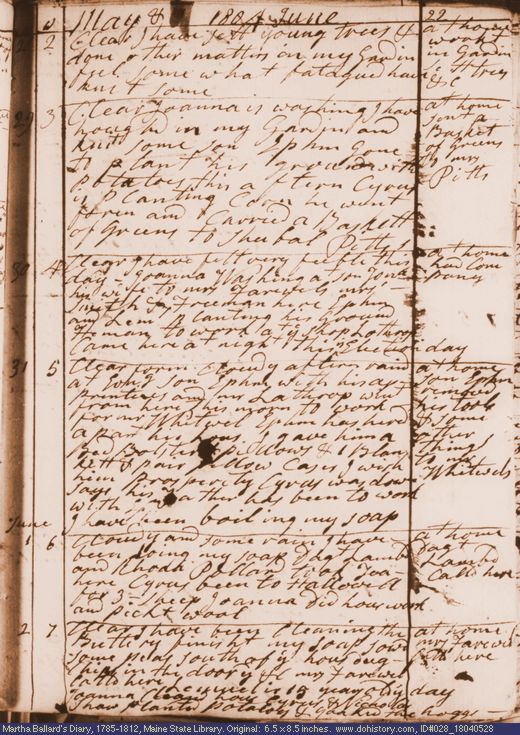 May & 1804 June 22
2 Clear I have sett young trees &
done other matters on my gardin
feel some what fatagued have
knit some
at home
workt
in Gardin
sett trees
& c
29 3 Clear Joanna is washing I have
howghd in my Gardin and
knit some son Ephm Gone
to plant his ground with
potatoes this aftern Cyrus
is planting Corn he went
ftren and Carried a Baskett
of Greens to Shubal Pitts
at home
sent a
Basket
of Greens
to mrs
Pitts
30 4 Clear I have felt very feeble this
day Joanna Washing at son
Smith & Freeman here Ephm
and Lem planting his Ground
man to work at Shop Lathrop
Came here at night this
day
at home
had Com
pany
31 5 Clear forn Cloudy aftern rain
at Evng son Ephm with his ap
printices and mr Lathrop who
from here this morn to work
for mr Whitwel Ephm has hird
a part his hous I gave him a
Bed Bolster & pillows & 1 Blan
kett & pair pillow Cases I wish
him prosperity Cyrus was down
says his father has been to work
with
I have been boiling my soap
at home
son Ephm
removd
his tools
& some
other
things
to mr
Whitwels
June
1 6 Cloudy and some rain I have
been doing my soap Dagt Lambd
and Rhoda Pollard
here Cyrus been to Hallowell
for 3 sheep Joanna did hous work
and pickt wool
at home
Dagt
Lambd
Calld here
2 7 Clear I have been Cleaning the
Buttery finisht my soap sowd
some peas south of ye hous dug
between the door yd mr Farewel
Calld here
Joanna is 18 years old this day
Shaw planted potatoes
at home
mr Farewel
Calld here
Martha Ballard's Diary, 1785-1812, Maine State Library. Original: 6.5 x 8.5 inches. www.dohistory.com, ID#028_18040528